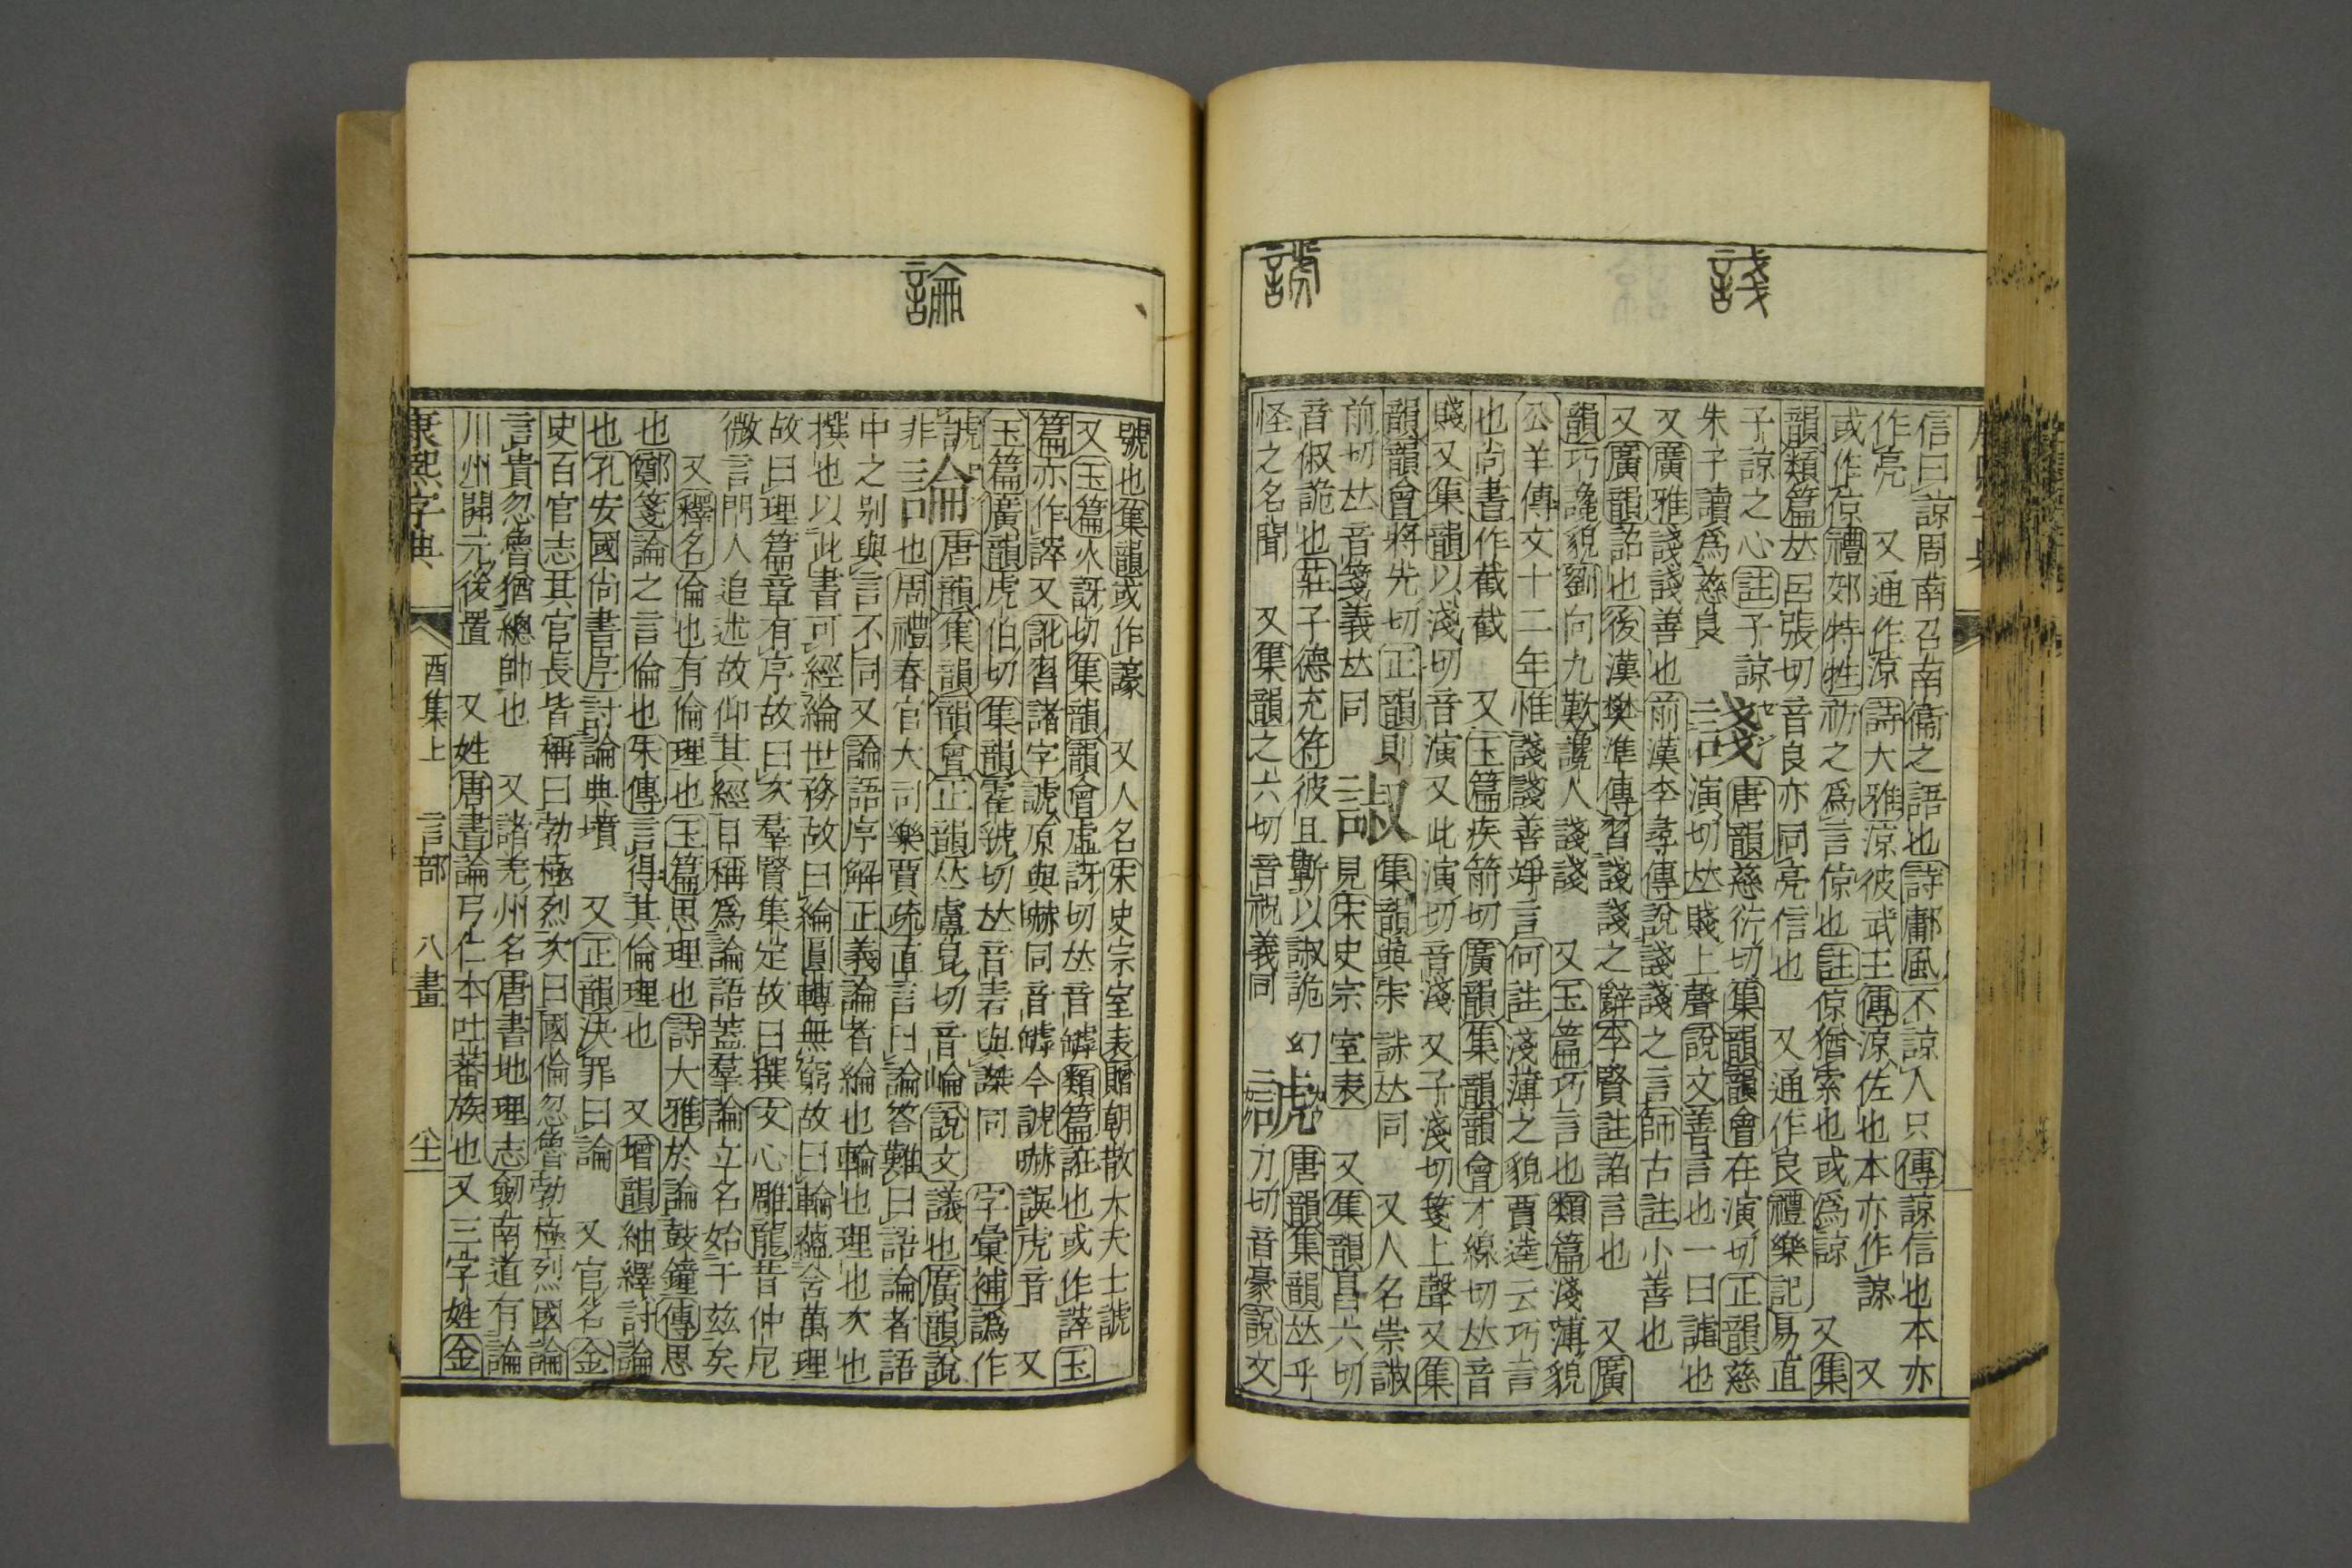 諓
諕
信曰諒周南召南衞之語也詩鄘風不諒人只傳諒信也本亦
作亮　又通作涼詩大雅涼彼武王傳涼佐也本亦作諒　又
或作倞禮郊特牲祊之爲言倞也註倞猶索也或爲諒　又集
韻類篇𠀤呂張切音良亦同亮信也　又通作良禮樂記易直
子諒之心註子諒
朱子讀爲慈良　諓唐韻慈衍切集韻韻會在演切正韻慈
演切𠀤賤上聲說文善言也一曰謔也
又廣雅諓諓善也前漢李尋傳說諓諓之言師古註小善也
又廣韻諂也後漢樊準傳習諓諓之辭李賢註諂言也　又廣
韻巧讒貌劉向九歎讒人諓諓　又玉篇巧言也類篇淺薄貌
公羊傳文十二年惟諓諓善竫言何註淺薄之貌賈逵云巧言
也尚書作截截　又玉篇疾箭切廣韻集韻韻會才線切𠀤音
賤又集韻以淺切音演又此演切音淺　又子淺切箋上聲又集
韻韻會將先切正韻則
前切𠀤音箋義𠀤同　諔集韻與宋諔𠀤同　又人名崇諔
見宋史宗室表　又集韻昌六切
音俶詭也莊子德充符彼且蘄以諔詭幻
怪之名聞　又集韻之六切音祝義同　諕唐韻集韻𠀤乎
刀切音豪說文
論
號也集韻或作譹　又人名宋史宗室表贈朝散大夫士諕
又玉篇火訝切集韻韻會虛訝切𠀤音罅類篇誑也或作謼玉
篇亦作謼又訛習諸字諕原與嚇同音罅今諕嚇誤虎音　又
玉篇廣韻虎伯切集韻霍虢切𠀤音砉與謋同　字彙補譌作
諕
非　論唐韻集韻韻會正韻𠀤盧昆切音崘說文議也廣韻說
也周禮春官大司樂賈疏直言曰論答難曰語論者語
中之别與言不同又論語序解正義論者綸也輪也理也次也
撰也以此書可經綸世務故曰綸圓轉無窮故曰輪蘊含萬理
故曰理篇章有序故曰次羣賢集定故曰撰文心雕龍昔仲尼
微言門人追述故仰其經目稱爲論語蓋羣論立名始于兹矣
又釋名倫也有倫理也玉篇思理也詩大雅於論鼓鐘傳思
也鄭箋論之言倫也朱傳言得其倫理也　又增韻紬繹討論
也孔安國尚書序討論典墳　又正韻決罪曰論　又官名金
史百官志其官長皆稱曰勃極烈次曰國倫忽魯勃極烈國論
言貴忽魯猶總帥也　又諸羌州名唐書地理志劒南道有論
川州開元後置　又姓唐書論弓仁本吐蕃族也又三字姓金
康熙字典　酉集上　言部　八畫